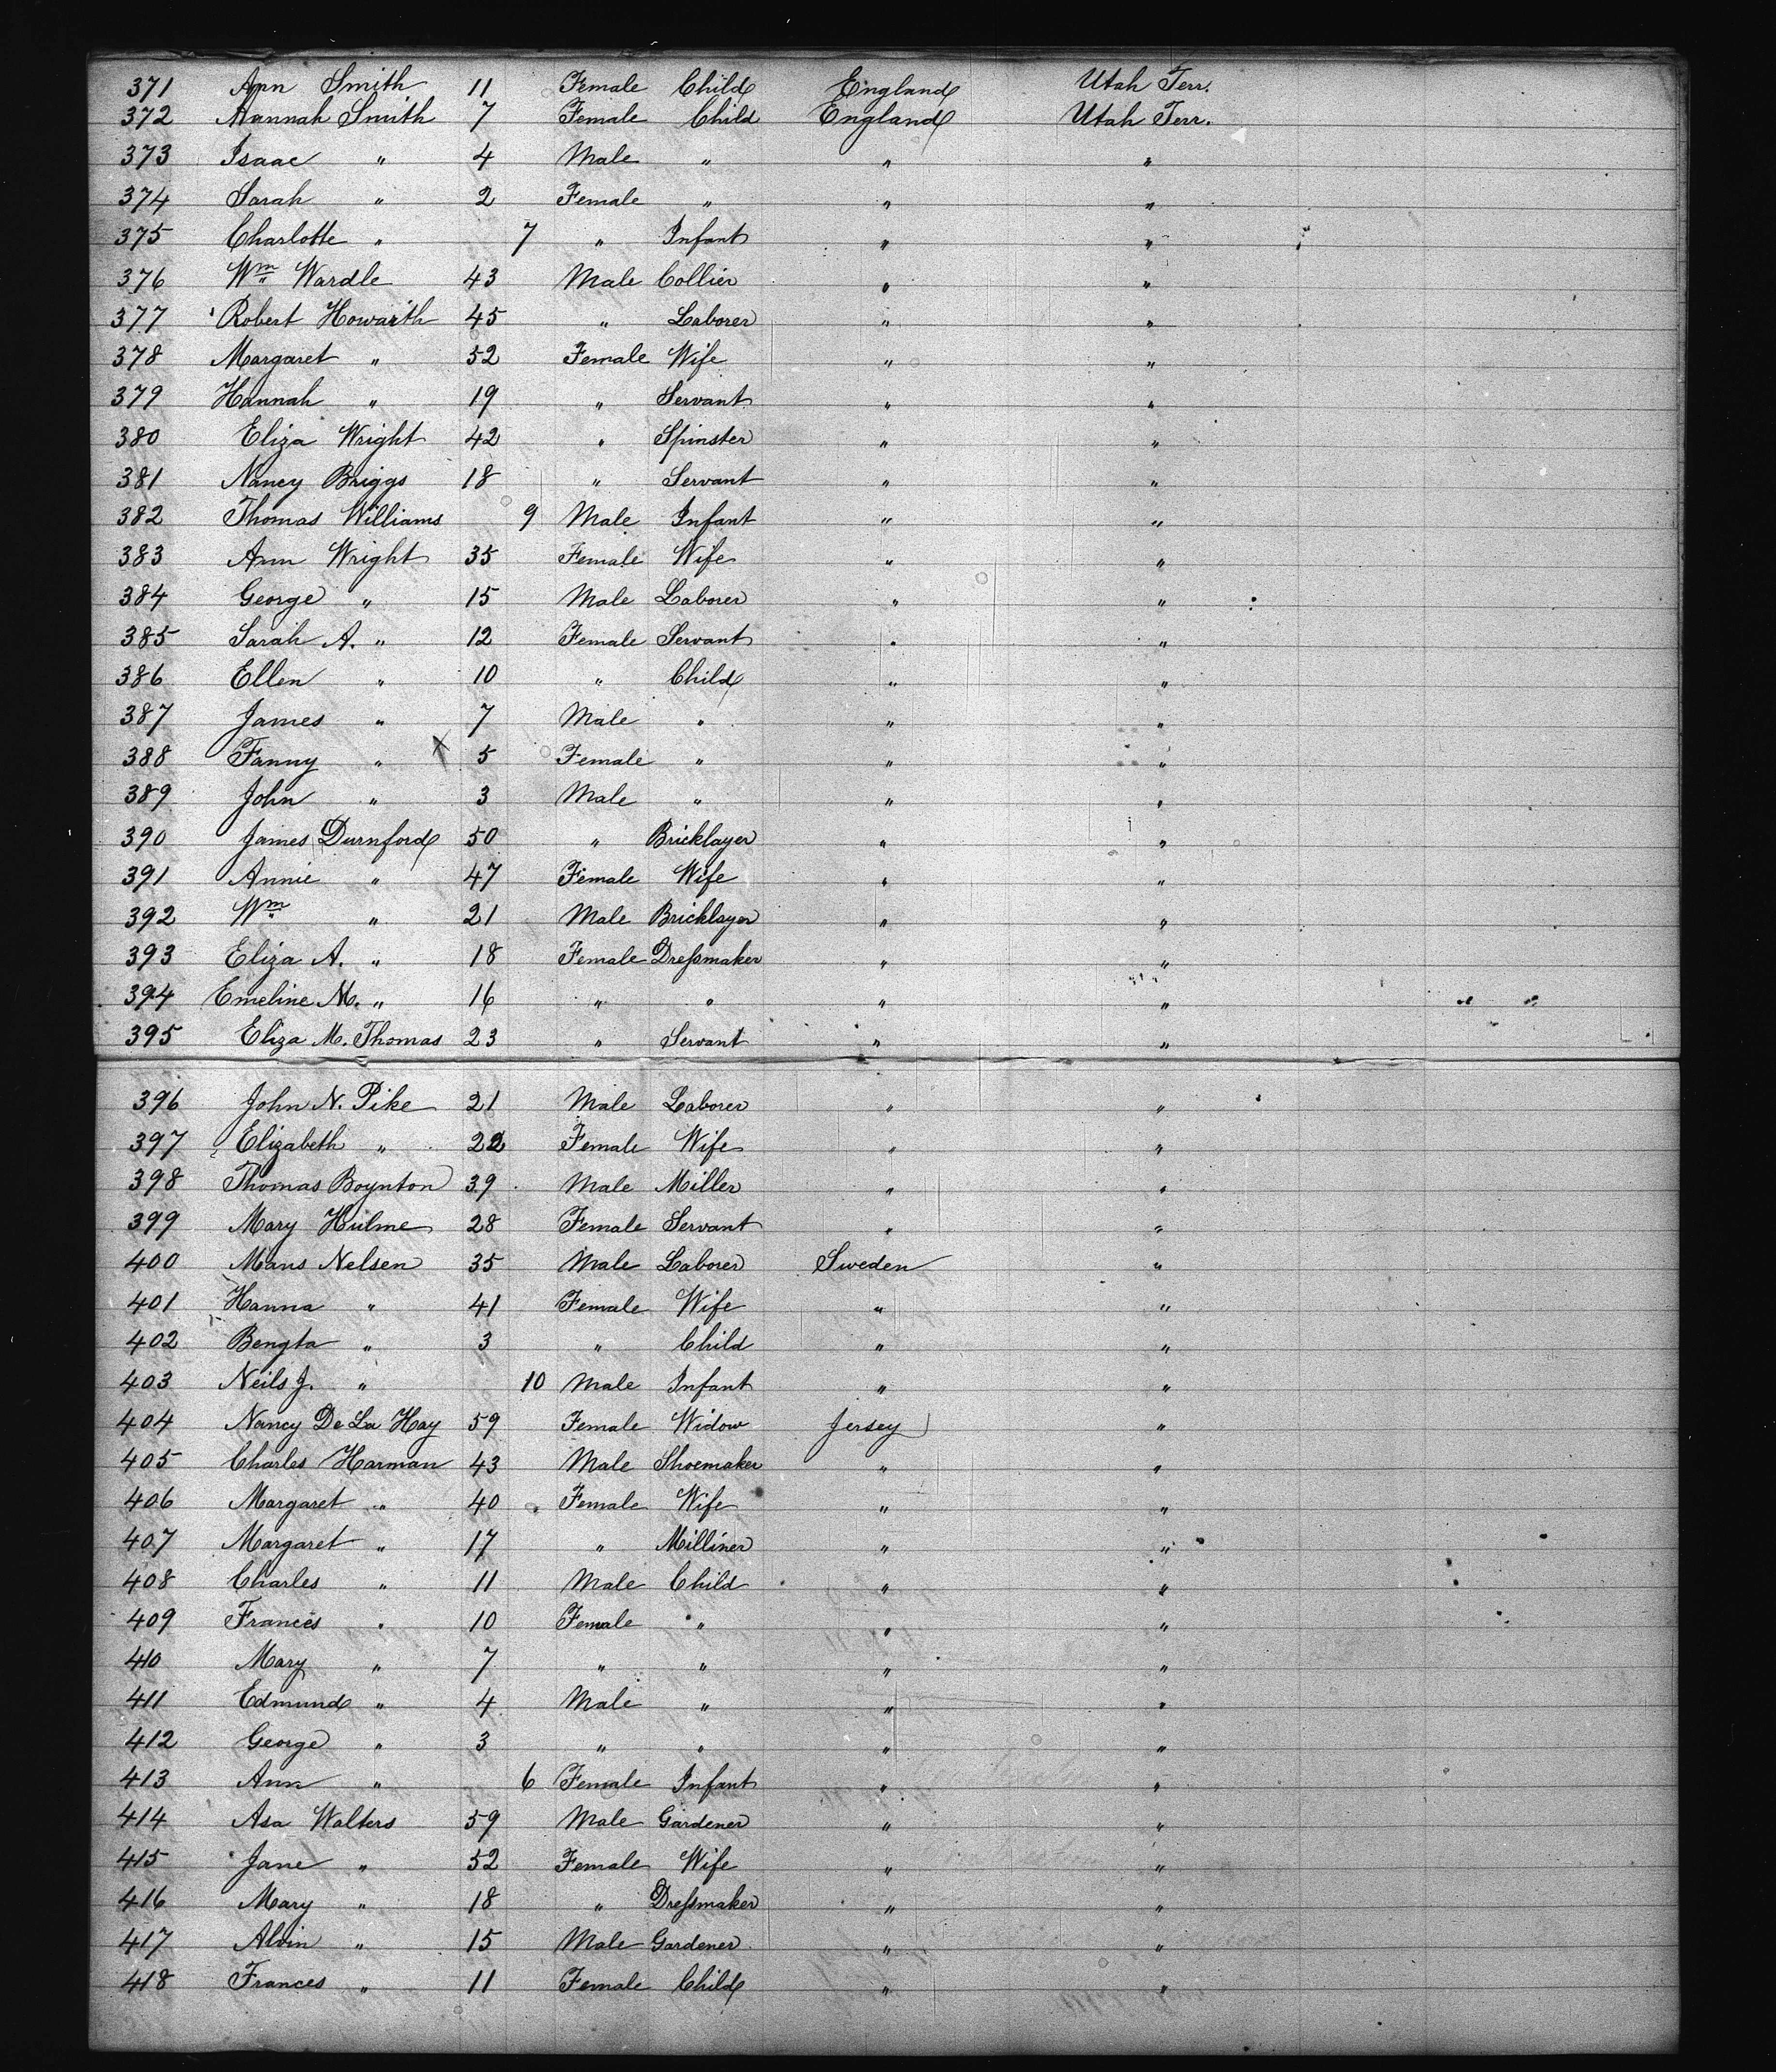 371 Ann Smith 11 Female Child England Utah Terr.
372 Hannah Smith 7 Female Child England Utah Terr.
373 Isaac " 4 Male " " "
374 Sarah " 2 Female " " "
375 Charlotte " 7 " Infant " "
376 Wm Wardle 43 Male Collier " "
377 Robert Howarth 45 " Laborer " "
378 Margaret " 52 Female Wife " "
379 Hannah " 19 " Servant " "
380 Eliza Wright 42 " Spinster " "
381 Nancy Briggs 18 " Servant " "
382 Thomas Williams 9 Male Infant " "
383 Ann Wright 35 Female Wife " "
384 George " 15 Male Laborer " "
385 Sarah A. " 12 Female Servant " "
386 Ellen " 10 " Child " "
387 James " 7 Male " " "
388 Fanny " X 5 Female " " "
389 John " 3 Male " " "
390 James Durnford 50 " Bricklayer " "
391 Annie " 47 Female Wife " "
392 Wm " 21 Male Bricklayer " "
393 Eliza A. " 18 Female Dressmaker " "
394 Emeline M. " 16 " " " "
395 Eliza M. Thomas 23 " Servant " "
396 John N. Pike 21 Male Laborer " "
397 Elizabeth " 22 Female Wife " "
398 Thomas Boynton 39 Male Miller " "
399 Mary Hulme 28 Female Servant " "
400 Mans Nelsen 35 Male Laborer Sweden "
401 Hanna " 41 Female Wife " "
402 Bengta " 3 " Child " "
403 Neils J. " 10 Male Infant " "
404 Nancy De La Hay 59 Female Widow Jersey "
405 Charles Harman 43 Male Shoemaker " "
406 Margaret " 40 Female Wife " "
407 Margaret " 17 " Milliner " "
408 Charles " 11 Male Child " "
409 Frances " 10 Female " " "
410 Mary " 7 " " " "
411 Edmund " 4 Male " " "
412 George " 3 " " " "
413 Ann " 6 Female Infant " "
414 Asa Walters 59 Male Gardener " "
415 Jane " 52 Female Wife " "
416 Mary " 18 " Dressmaker " "
417 Alvin " 15 Male Gardener " "
418 Frances " 11 Female Child " "